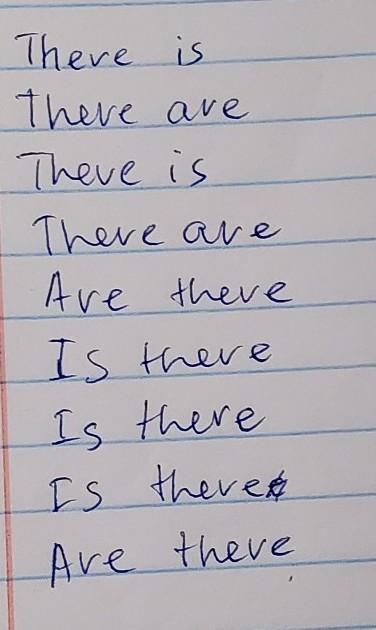 There is
there are
There is
There are
Are there
Is there
Is there
Is there
Are there